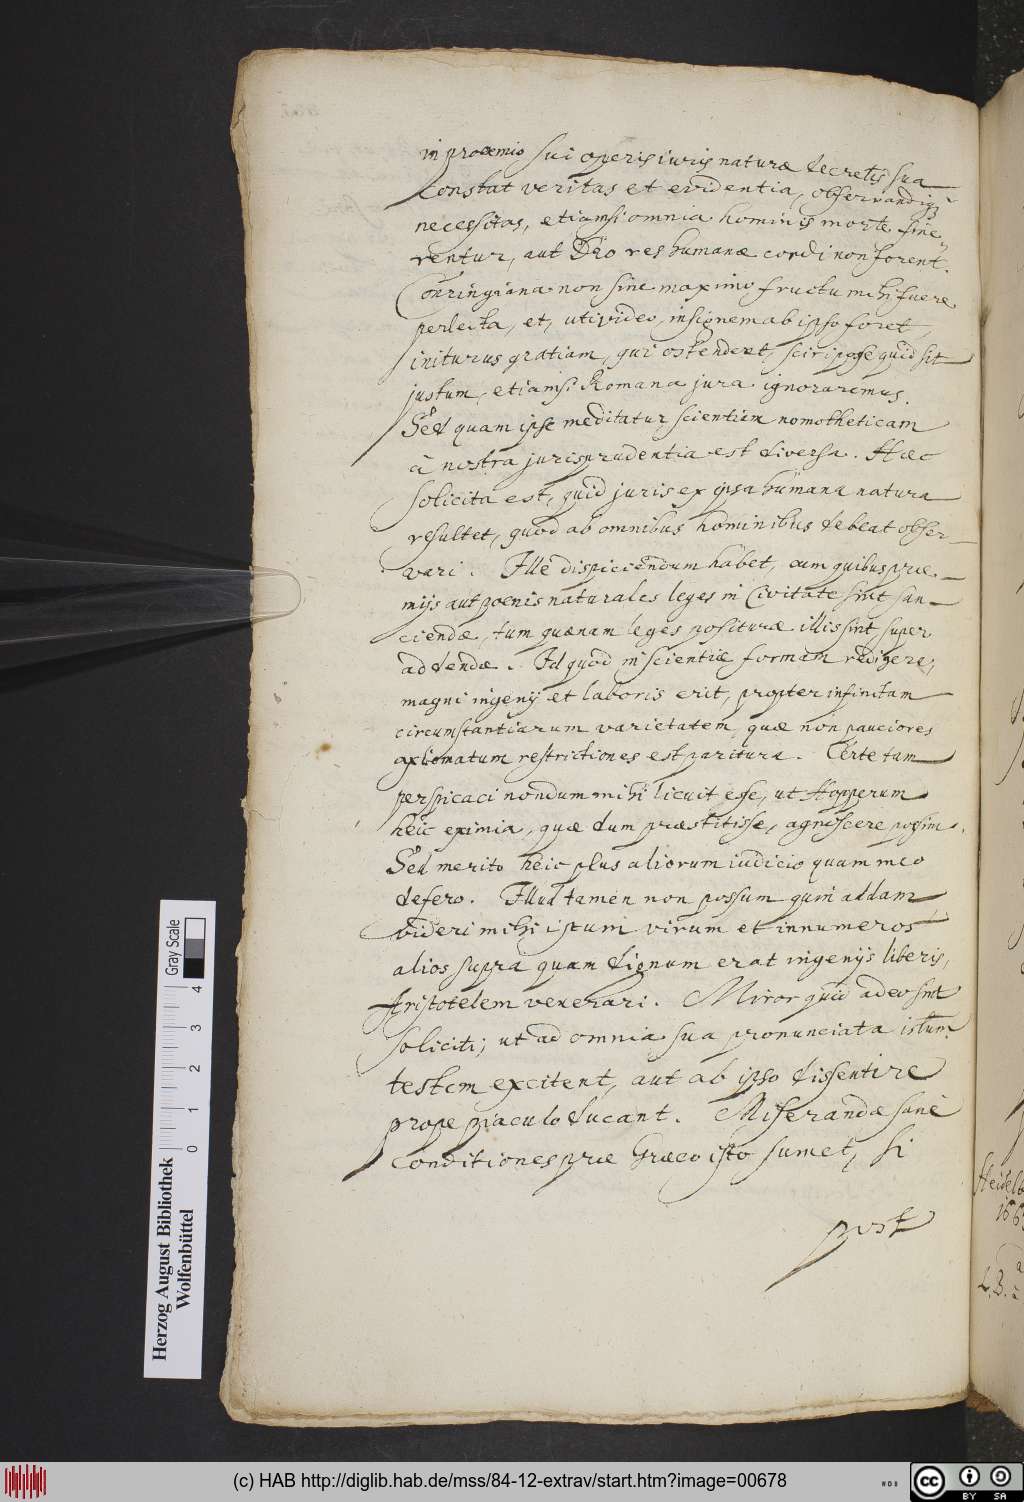 in prooemio sui operis iuris naturæ decretis sua
constat veritas et evidentia, observandiq́
necessitas, etiamsi omnia hominis morte fini-
rentur, aut Deo res humanæ cordi non forent.
Conringiana non sine maximo fructu mihi fuere
perlecta, et, uti video, insignem ab ipso foret
initurus gratiam, qui ostenderet, sciri posse quid sit
justum, etiamsi Romana jura ignoraremus.
Sed quam ipse meditatur scientiam nomotheticam
à nostra jurisprudentia est diversa. Hæc
solicita est, quid juris ex ipsa humana natura
resultet, quod ab omnibus hominibus debeat obser-
vari. Illi dispiciendum habet, cum quibus præ-
mijs aut poenis naturales leges in Civitate sint san-
ciendæ, tum quænam leges positivæ illis sint super
addendæ. Id quod in scientiæ formam redigere,
magni ingenij et laboris erit, propter infinitam
circumstantiarum varietatem, quæ non pauciores
axiomatum restrictiones est paritura. Certe tam
perspicaci nondum mihi licuit esse, ut Hopperum
heic eximia, quæ dum præstitisse, agnoscere possim.
Sed merito heic plus aliorum iudicio quam meo
defero. Illud tamen non possum quin addam
videri mihi istum virum et innumeros
alios supra quam dignum erat ingenijs liberis,
Aristotelem venerari. Miror quid adeo sint
soliciti; ut ad omnia sua pronunciata istum
testem excitent, aut ab ipso dissentire
prope piaculo ducant. Miserandæ sanè
conditiones præ Græco isto sumet, si
post
Heidelb
L.B.
Herzog August Bibliothek
Wolfenbüttel
0 1 2 3 4
Gray Scale
(c) HAB http://diglib.hab.de/mss/84-12-extrav/start.htm?image=00678
cc BY SA